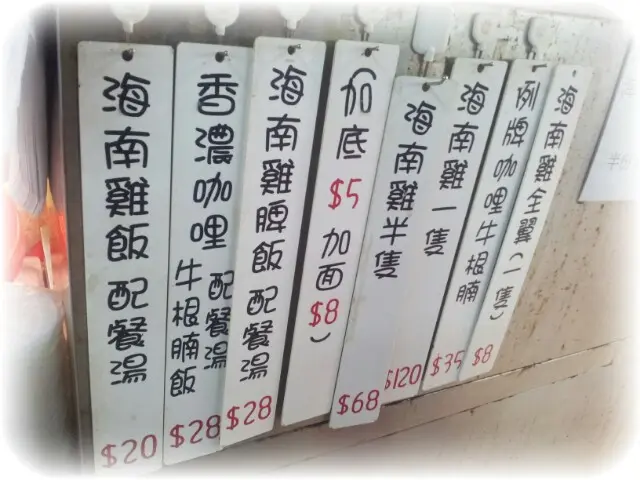 海南雞飯 配餐湯
$20
香濃咖哩
牛根腩飯
配餐湯
$28
海南雞脾飯 配餐湯
$28
加底 $5 加面 $8 )
海南雞半隻
$68
海南雞一隻
$120
例牌咖哩牛根腩
$35
海南雞全翼(一隻)
$8